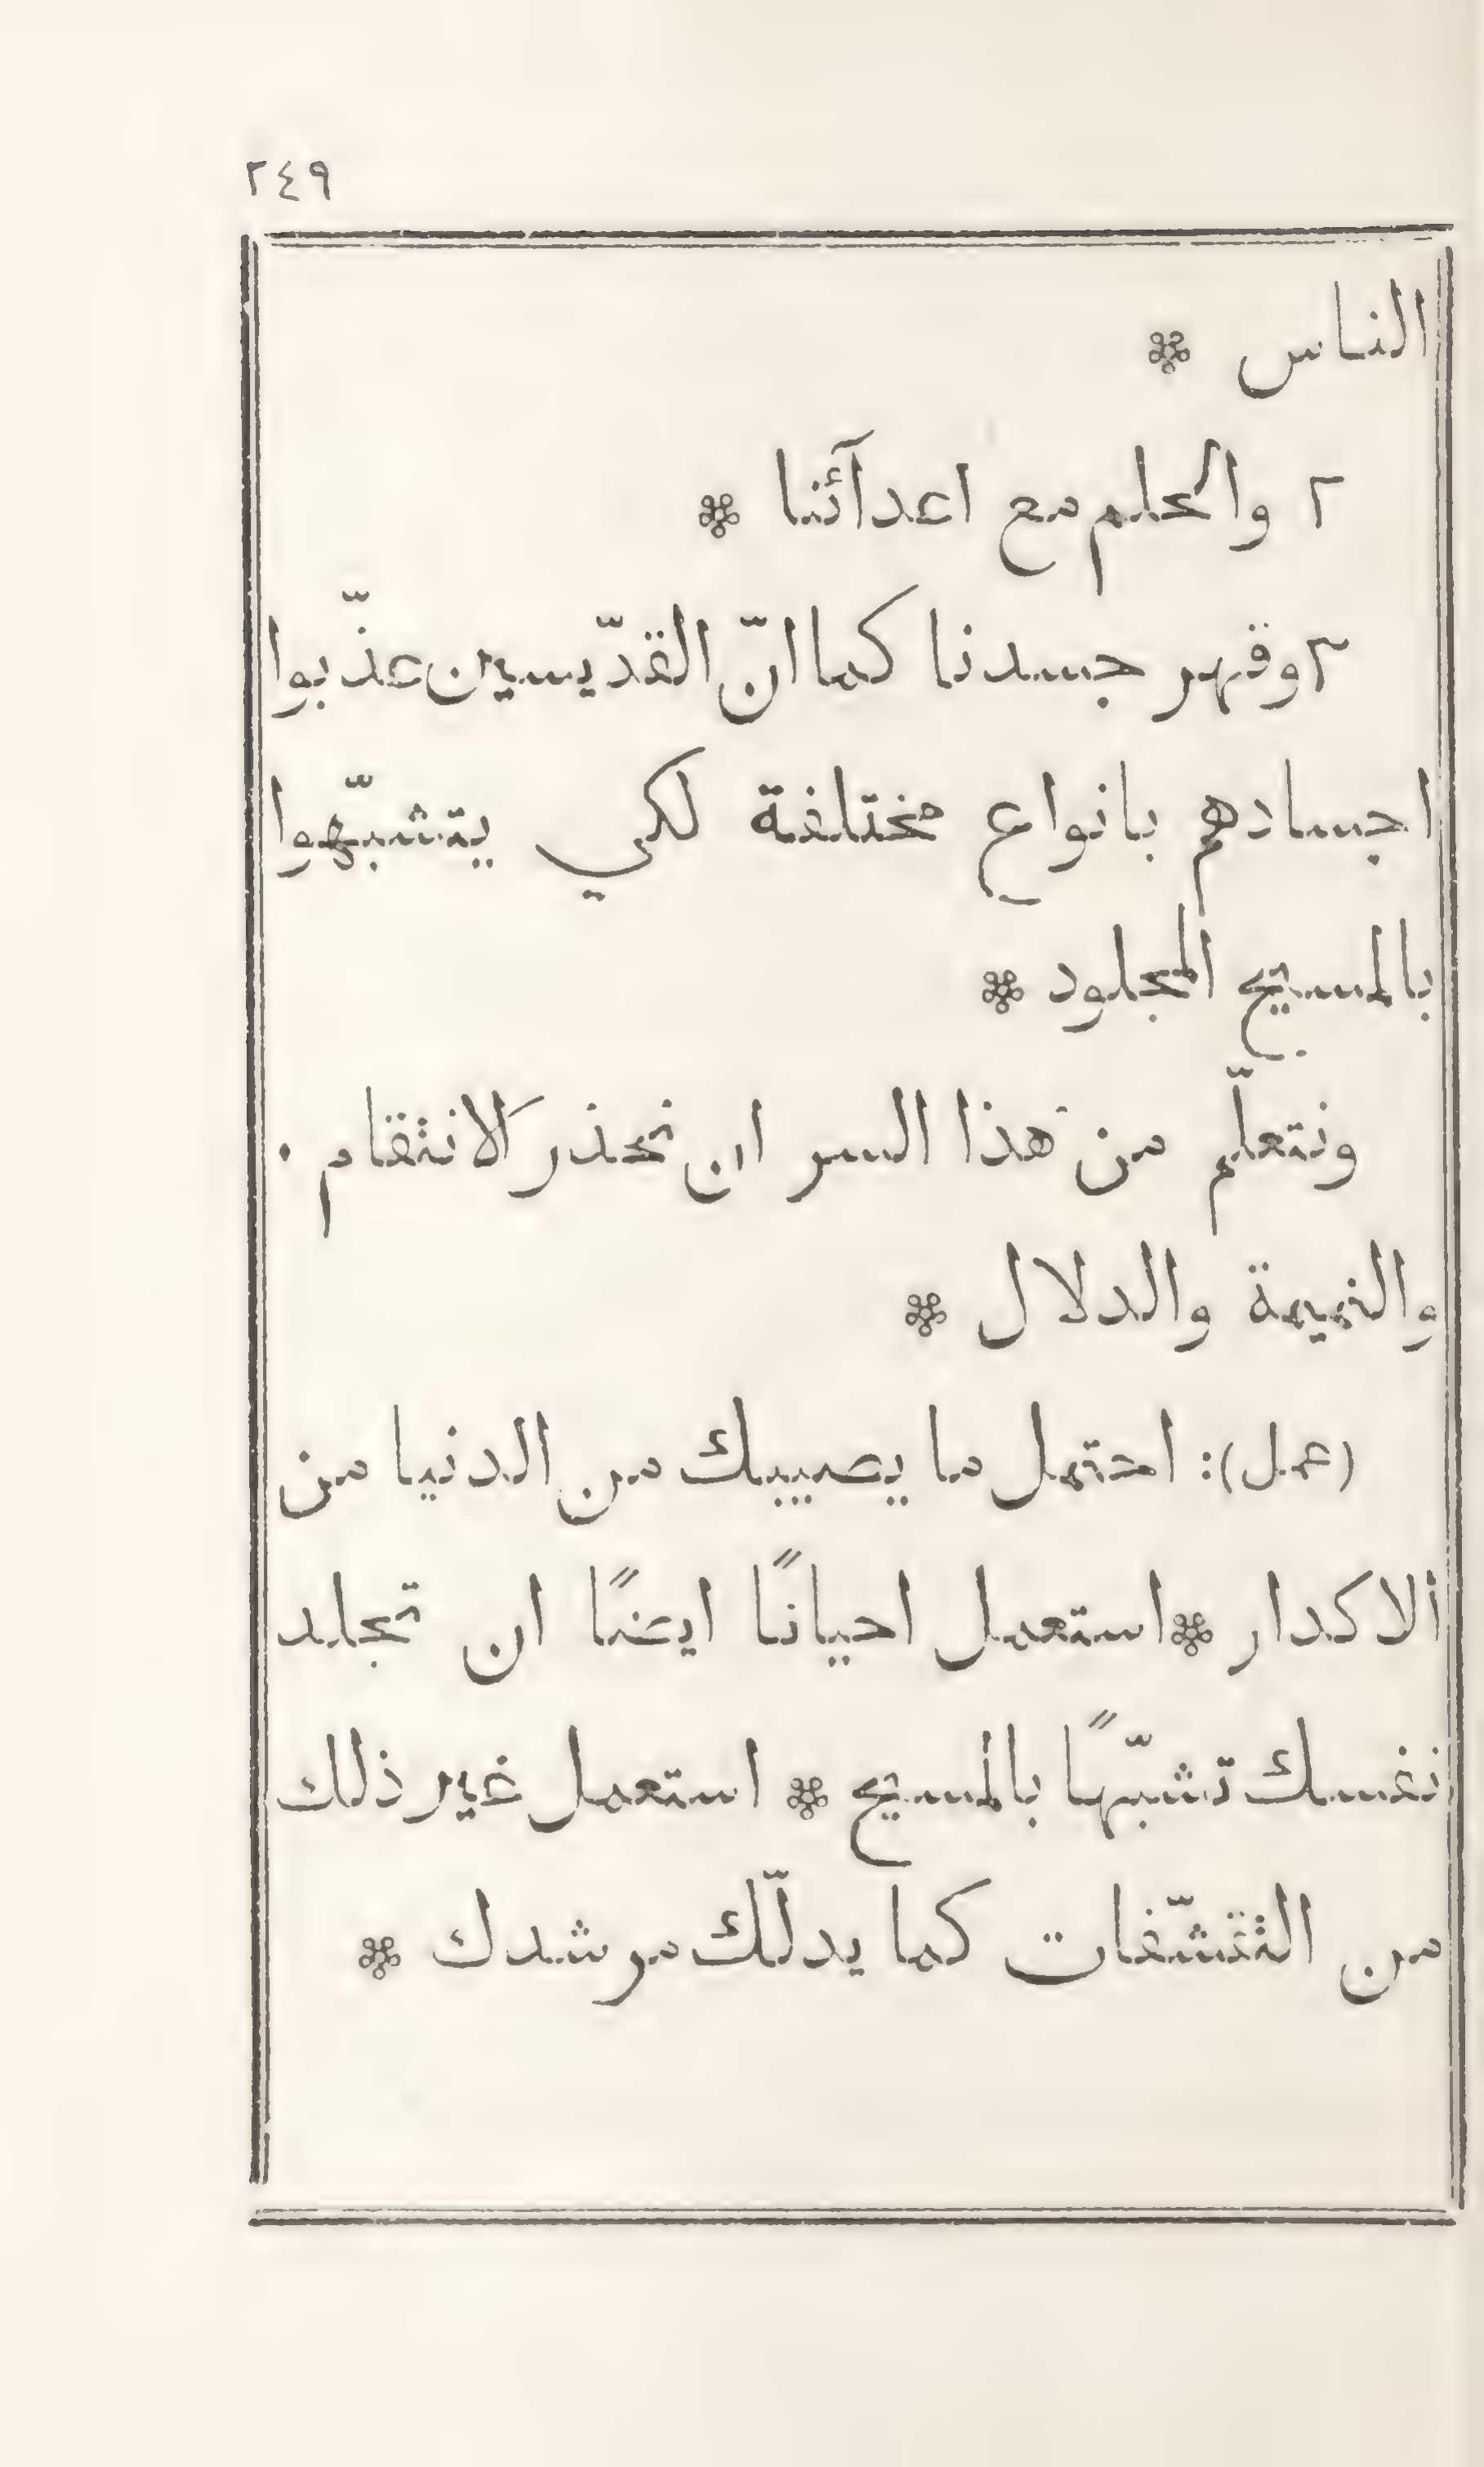 ٢٤٩
الناس ❊
٢ والحلم مع اعدآئنا ❊
٣ وقهر جسدنا كما انّ القدّيسين عذّبوا
اجسادهم بانواع مختلفة لكي يتشبّهوا
بالمسيح المجلود ❊
ونتعلّم من هذا السر ان نحذر الانتقام ٠
والنميمة والدلال ❊
(عمل): احتمل ما يصيبك من الدنيا من
الاكدار ❊ استعمل احيانًا ايضًا ان تجلد
نفسك تشبّهًا بالمسيح ❊ استعمل غير ذلك
من التقشّفات كما يدلّك مرشدك ❊